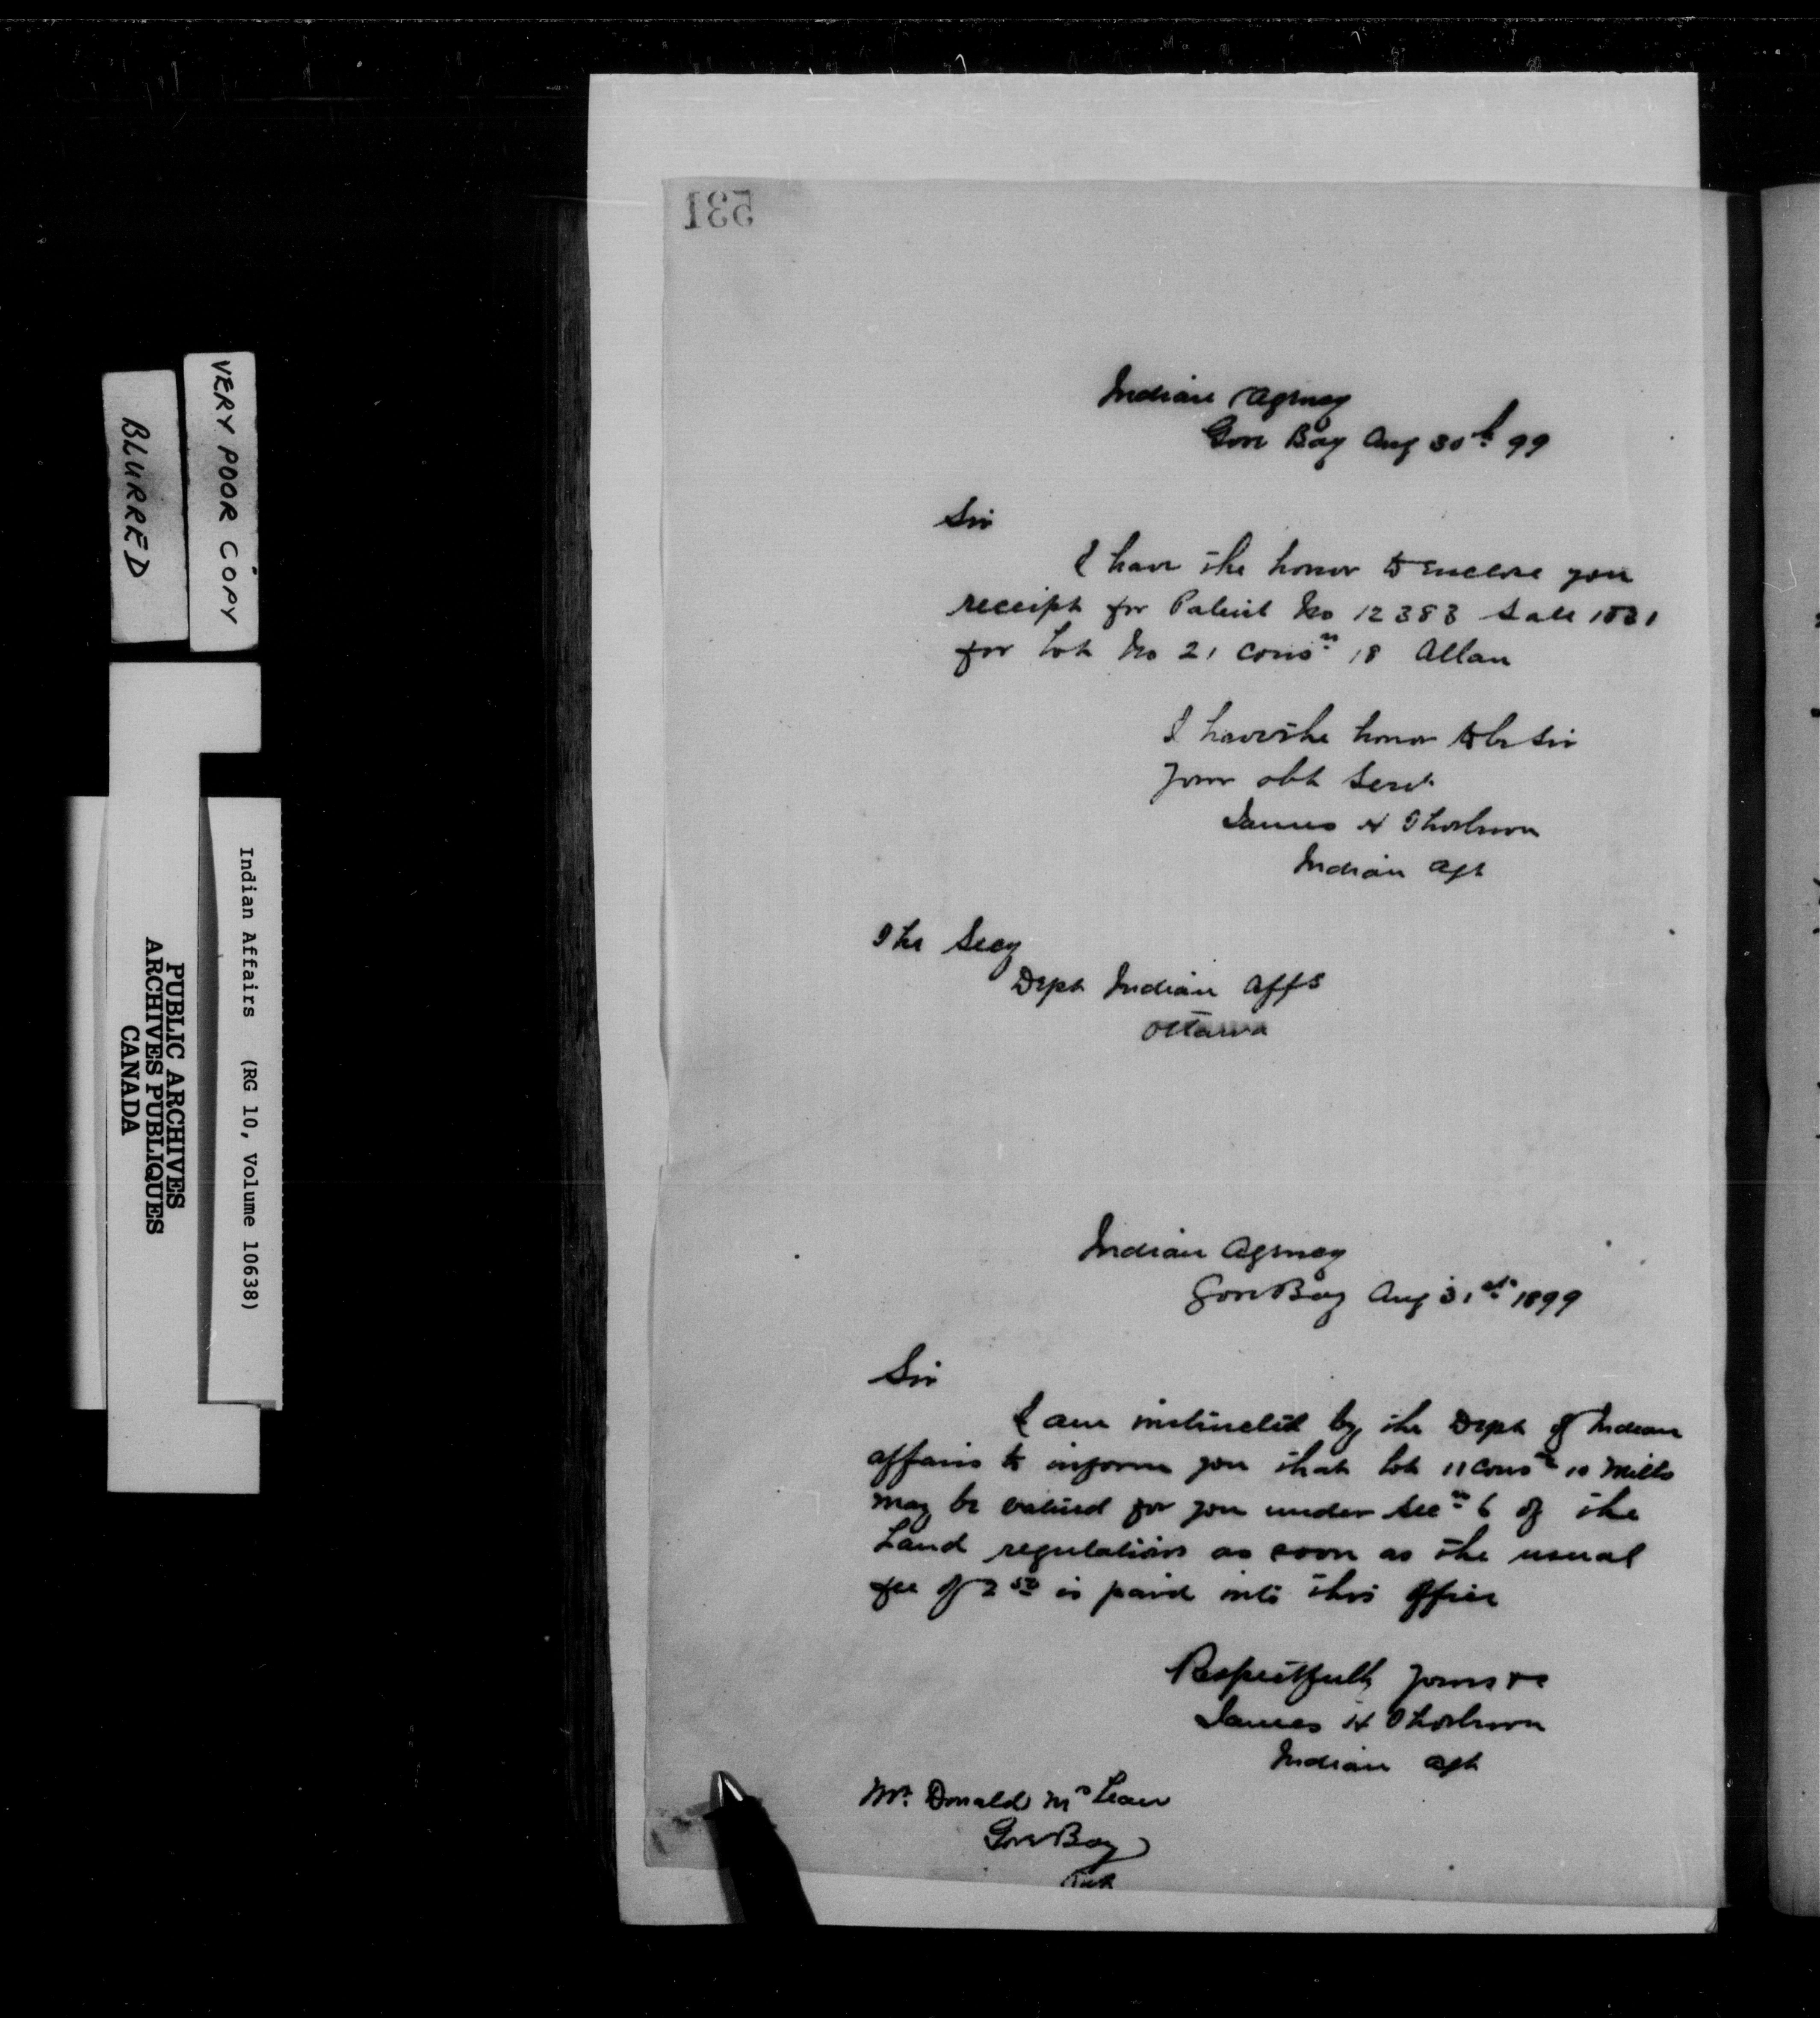 531
Indian Agency
Gore Bay Aug 30th 99
Sir
I have the honor to enclose you
receipt for Patent No 12383 Sale 1531
for Lot No 21 Consn 18 Allan
I have the honor to be Sir
Your obt Servt
James H Thorburn
Indian Agt
The Secy
Dept Indian Affs
Ottawa
Indian Agency
Gore Bay Aug 31st 1899
Sir
I am instructed by the Dept of Indian
affairs to inform you that Lot 11 Consn 10 Mills
may be valued for you under Secn 6 of the
Land regulations as soon as the usual
fee of 2 50 is paid into this office
Respectfully Yours &c
James H Thorburn
Indian Agt
Mr. Donald McLean
Gore Bay
VERY POOR COPY
BLURRED
Indian Affairs (RG 10, Volume 10638)
PUBLIC ARCHIVES
ARCHIVES PUBLIQUES
CANADA